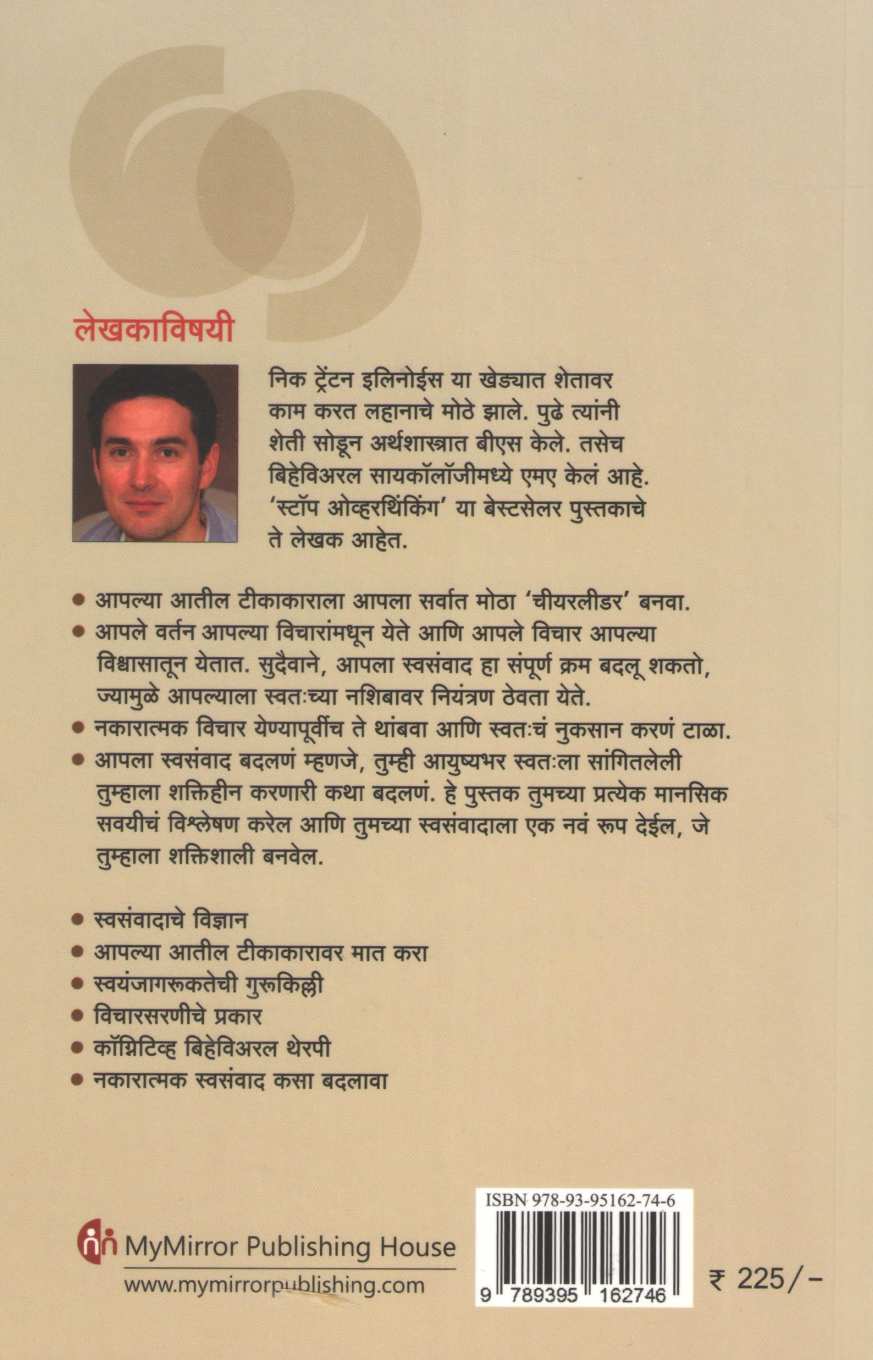 लेखकाविषयी
निक ट्रेंटन इलिनोईस या खेड्यात शेतावर
काम करत लहानाचे मोठे झाले. पुढे त्यांनी
शेती सोडून अर्थशास्त्रात बीएस केले. तसेच
बिहेविअरल सायकॉलॉजीमध्ये एमए केलं आहे.
‘स्टॉप ओव्हरथिंकिंग’ या बेस्टसेलर पुस्तकाचे
ते लेखक आहेत.
● आपल्या आतील टीकाकाराला आपला सर्वात मोठा ‘चीयरलीडर’ बनवा.
● आपले वर्तन आपल्या विचारांमधून येते आणि आपले विचार आपल्या
विश्वासातून येतात. सुदैवाने, आपला स्वसंवाद हा संपूर्ण क्रम बदलू शकतो,
ज्यामुळे आपल्याला स्वतःच्या नशिबावर नियंत्रण ठेवता येते.
● नकारात्मक विचार येण्यापूर्वीच ते थांबवा आणि स्वतःचं नुकसान करणं टाळा.
● आपला स्वसंवाद बदलणं म्हणजे, तुम्ही आयुष्यभर स्वतःला सांगितलेली
तुम्हाला शक्तिहीन करणारी कथा बदलणं. हे पुस्तक तुमच्या प्रत्येक मानसिक
सवयीचं विश्लेषण करेल आणि तुमच्या स्वसंवादाला एक नवं रूप देईल, जे
तुम्हाला शक्तिशाली बनवेल.
● स्वसंवादाचे विज्ञान
● आपल्या आतील टीकाकारावर मात करा
● स्वयंजागरूकतेची गुरूकिल्ली
● विचारसरणीचे प्रकार
● कॉग्निटिव्ह बिहेविअरल थेरपी
● नकारात्मक स्वसंवाद कसा बदलावा
ISBN 978-93-95162-74-6
MyMirror Publishing House
www.mymirrorpublishing.com
9 789395 162746
₹ 225/-